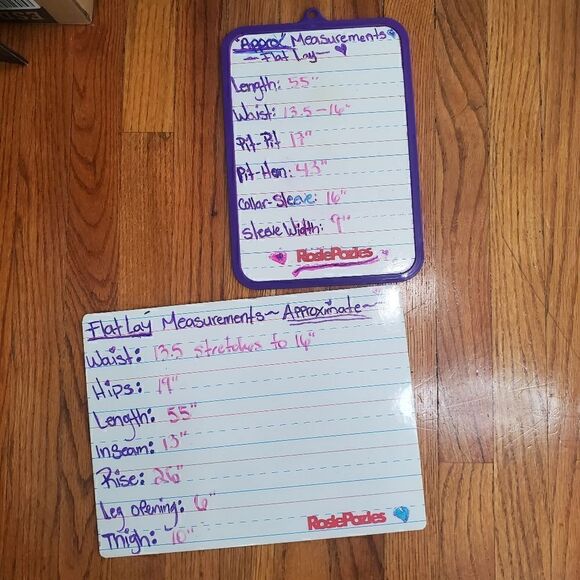 "Approx" Measurements
~ Flat Lay ~
Length: 55"
Waist: 13.5-16"
Pit-Pit 17"
Pit-Hem: 43"
Collar-Sleeve: 16"
Sleeve Width: 9"
RosiePozies
Flat Lay Measurements ~ Approximate ~
Waist: 13.5 stretches to 16"
Hips: 19"
Length: 55"
Inseam: 13"
Rise: 26"
Leg opening: 6"
Thigh: 10"
RosiePozies